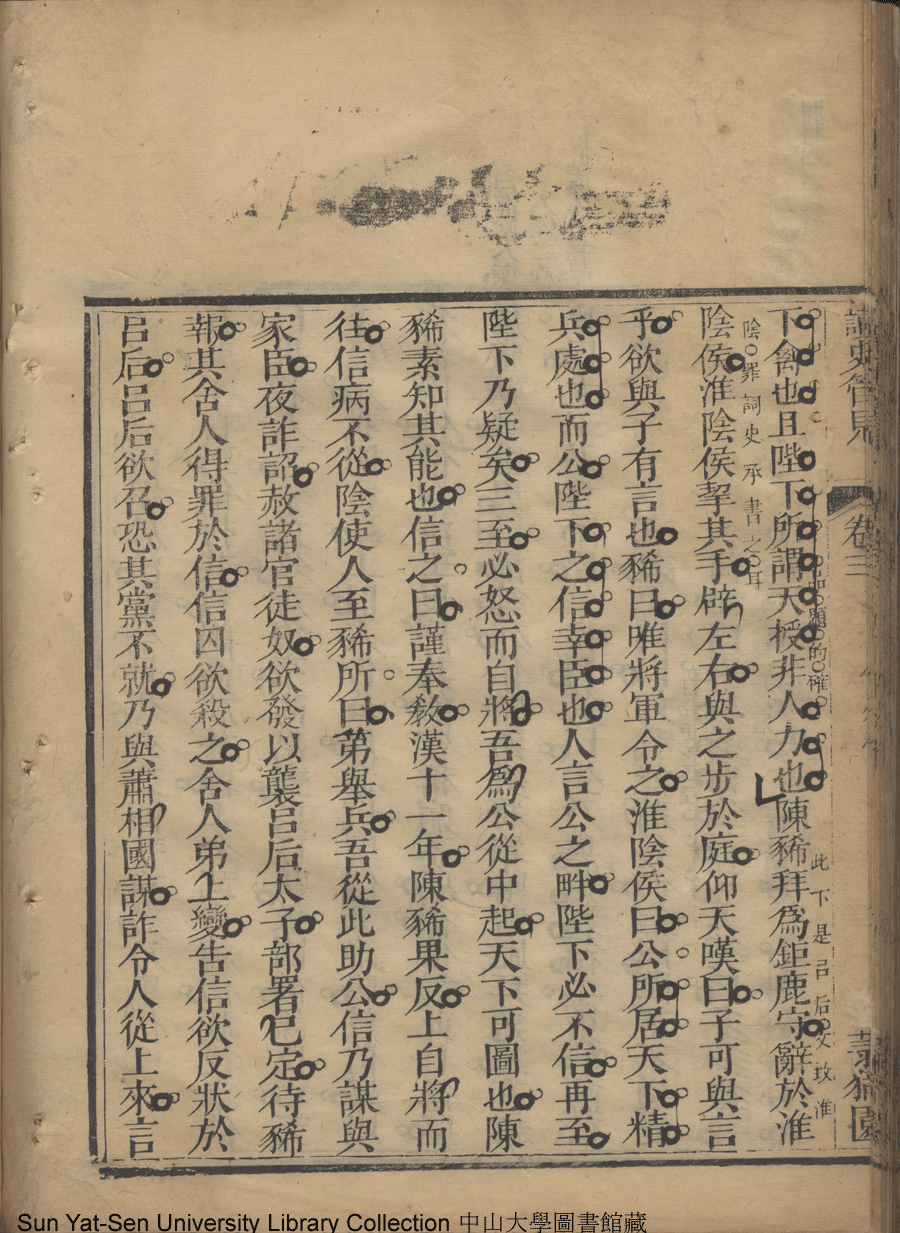 讀史管見
卷三
下禽也且陛下所謂天授非人力也陳豨拜爲鉅鹿守辭於淮
品題的確
此下是呂后文致淮
陰罪詞史承書之耳
陰侯淮陰侯挈其手辟左右與之步於庭仰天嘆曰子可與言
乎欲與子有言也豨曰唯將軍令之淮陰侯曰公所居天下精
兵處也而公陛下之信幸臣也人言公之畔陛下必不信再至
陛下乃疑矣三至必怒而自將吾爲公從中起天下可圖也陳
豨素知其能也信之曰謹奉教漢十一年陳豨果反上自將而
往信病不從陰使人至豨所曰第舉兵吾從此助公信乃謀與
家臣夜詐詔赦諸官徒奴欲發以襲呂后太子部署已定待豨
報其舍人得罪於信信囚欲殺之舍人弟上變告信欲反狀於
呂后呂后欲召恐其黨不就乃與蕭相國謀詐令人從上來言
Sun Yat-Sen University Library Collection 中山大學圖書館藏